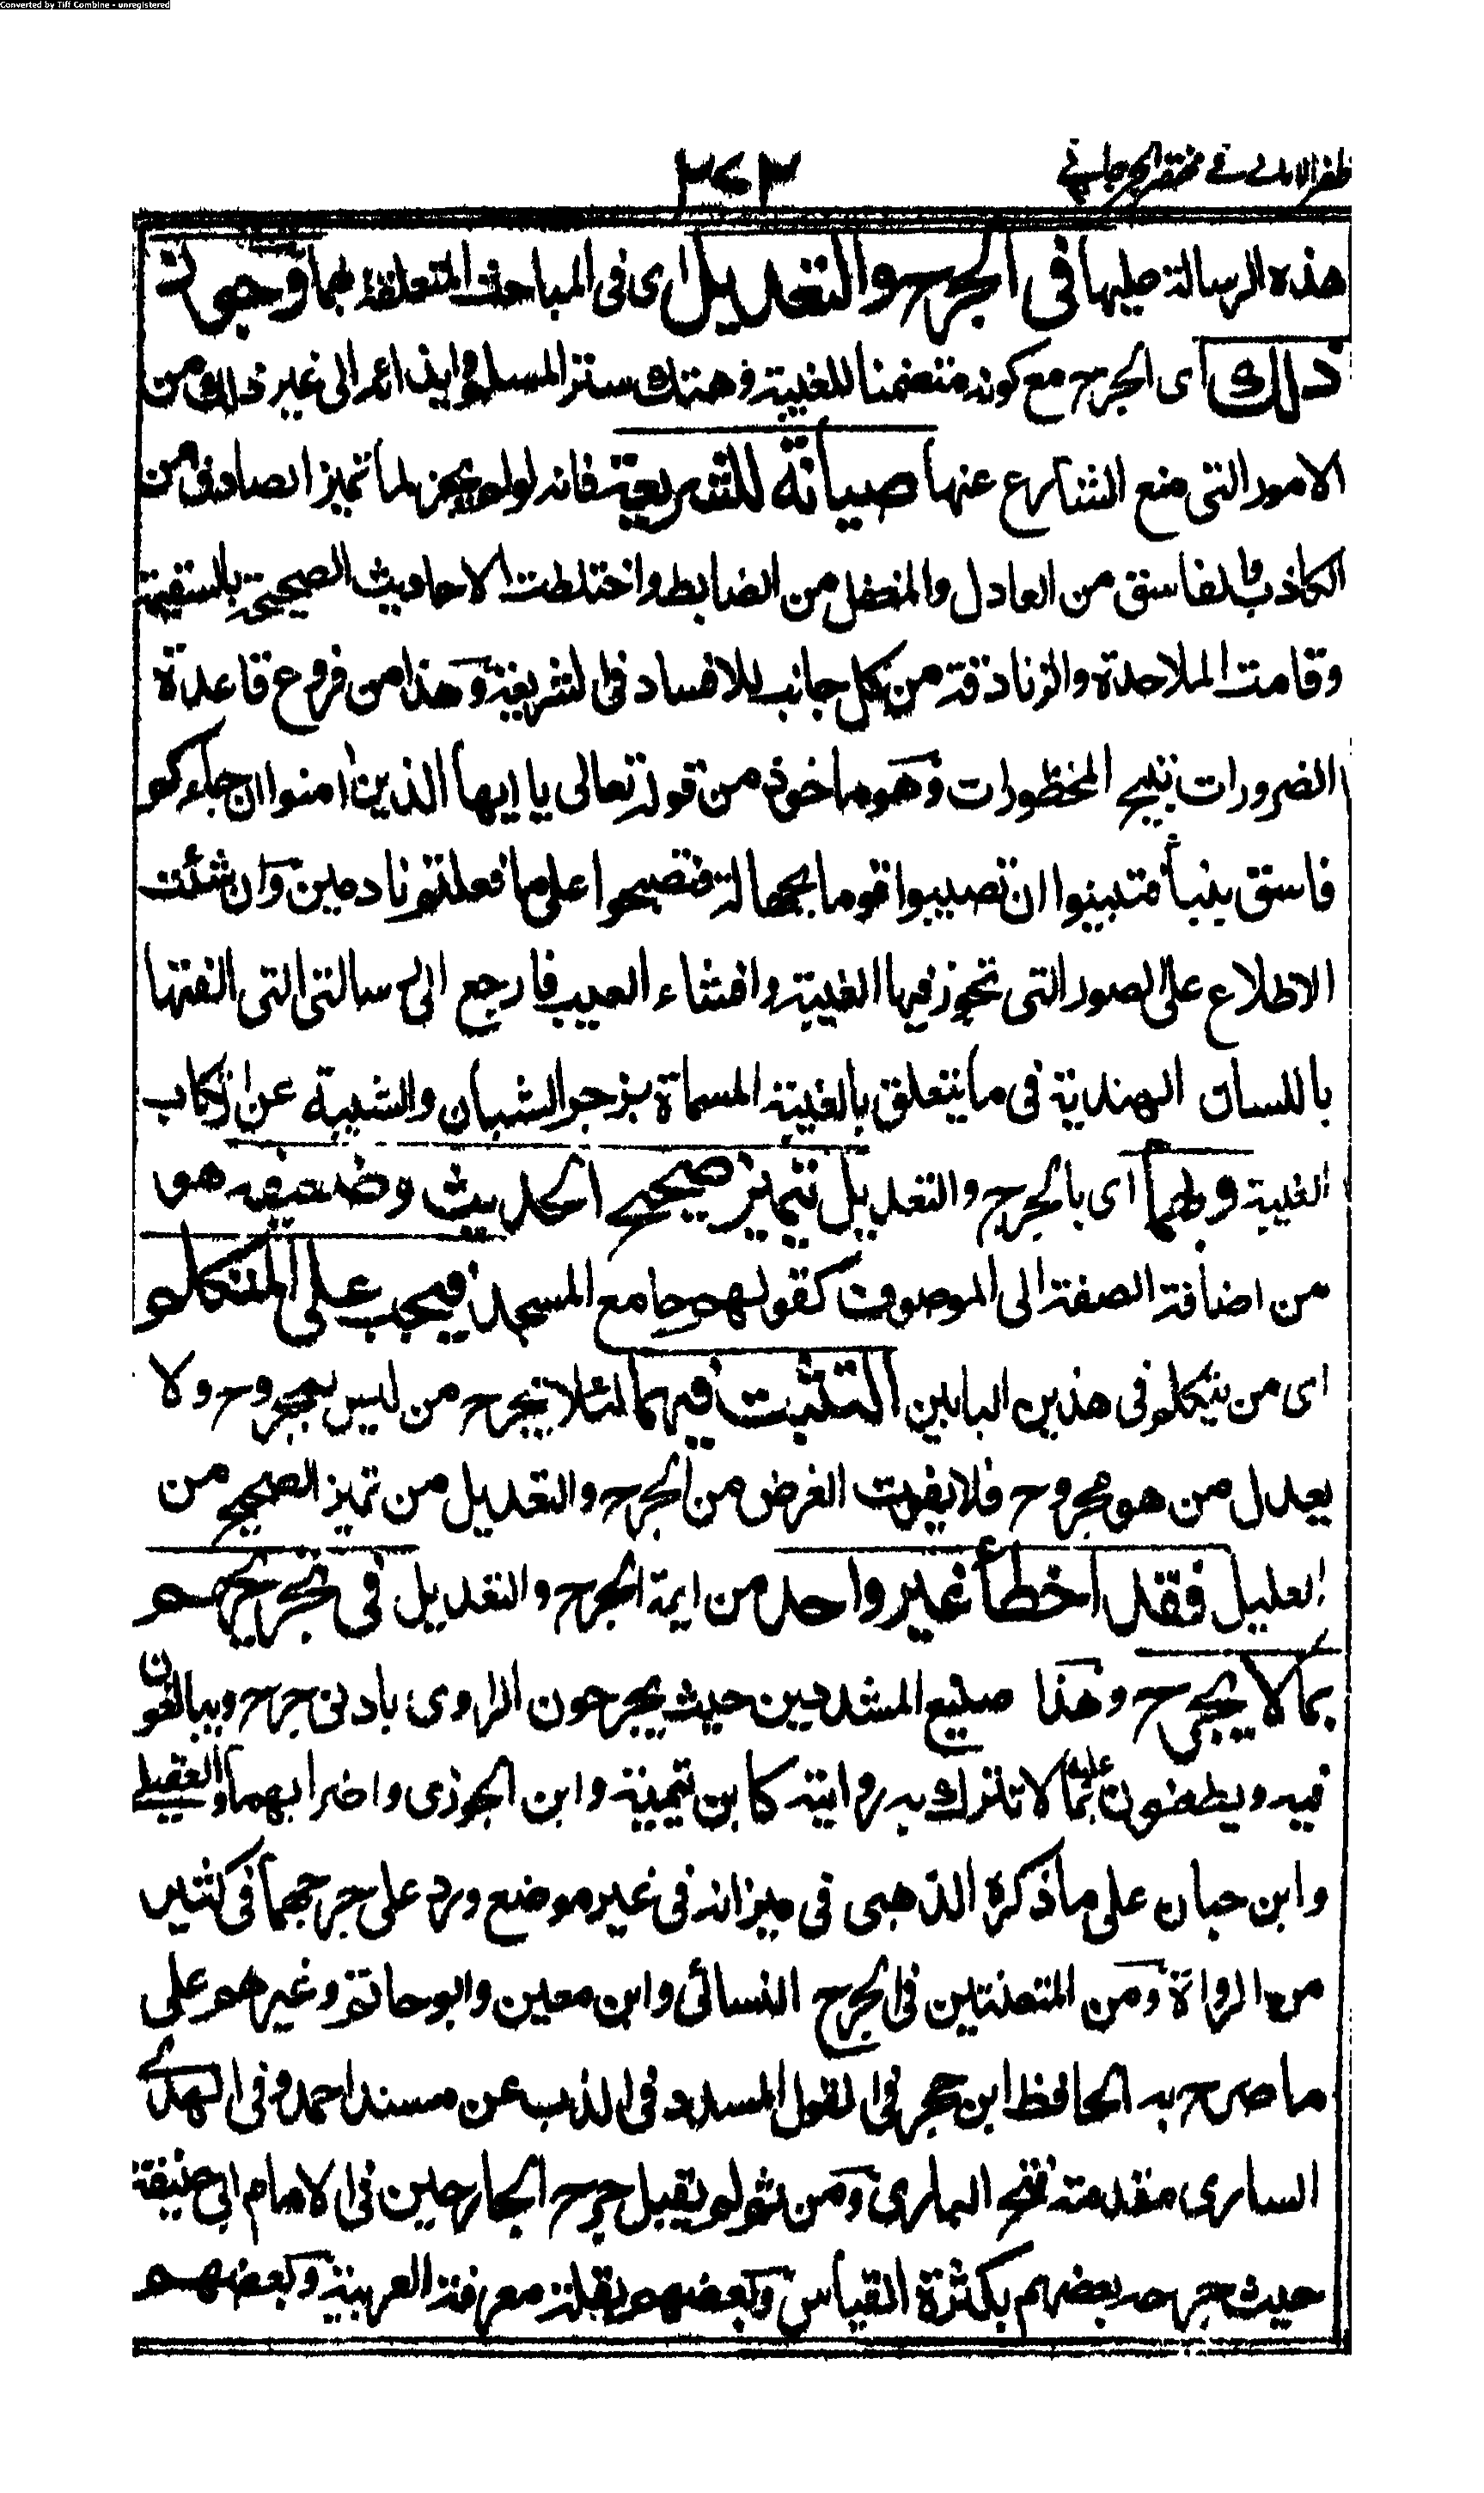 Converted by Tiff Combine - unregistered
ظفر الاماني في مختصر الجرجاني
٢٧٢
هذه الرسالة عليها في الجرح والتعديل اى فى المباحث المتعلقة بهما وجوز
ذلك اى الجرح مع كونه متضمنا للغيبة وهتك ستر المسلم وايذائه الى غير ذلك من
الامور التى منع الشارع عنها صيانة للشريعة فانه لو لم يجز لما تميز الصادق من
الكاذب والفاسق من العادل والمغفل من الضابط واختلطت الاحاديث الصحيحة بالسقيمة
وقامت الملاحدة والزنادقة من كل جانب للافساد فى الشريعة وهذا من فروع قاعدة
الضرورات تبيح المحظورات وهو ماخوذ من قوله تعالى يا ايها الذين امنوا ان جاءكم
فاسق بنبأ فتبينوا ان تصيبوا قوما بجهالة فتصبحوا على ما فعلتم نادمين وان شئت
الاطلاع على الصور التى تجوز فيها الغيبة وافشاء العيب فارجع الى رسالتى التى الفتها
باللسان الهندية فى ما يتعلق بالغيبة المسماة بزجر الشبان والشيبة عن ارتكاب
الغيبة وبهما اى بالجرح والتعديل تتميز صحيح الحديث وضعيفه هو
من اضافة الصفة الى الموصوف كقولهم جامع المسجد فيجب على المتكلم
اى من يتكلم فى هذين البابين التثبت فيهما لئلا يجرح من ليس بمجروح ولا
يعدل من هو مجروح فلا يفوت الغرض من الجرح والتعديل من تميز الصحيح من
العليل فقد اخطأ غير واحد من ايمة الجرح والتعديل فى تجريحهم
بما لا يجرح وهذا صنيع المشددين حيث يجرحون الراوى بادنى جرح ويبالغون
فيه ويطعنون عليه بما لا تترك به روايته كابن تيمية وابن الجوزى واضرابهما والعقيلى
وابن حبان على ما ذكره الذهبى فى ميزانه فى غير موضع ورد على جرحهما فى كثير
من الرواة ومن المتعنتين فى الجرح النسائى وابن معين وابو حاتم وغيرهم على
ما صرح به الحافظ ابن حجر فى القول المسدد فى الذب عن مسند احمد وفى الهدى
السارى مقدمة فتح البارى ومن ثم لم يقبل جرح الجارحين فى الامام ابى حنيفة
حيث جرحه بعضهم بكثرة القياس وبعضهم بقلة معرفة العربية وبعضهم